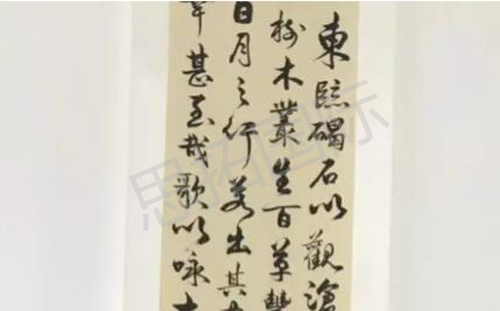 東臨碣石以觀滄
樹木叢生百草豐
日月之行若出其
幸甚至哉歌以咏
思拓国际